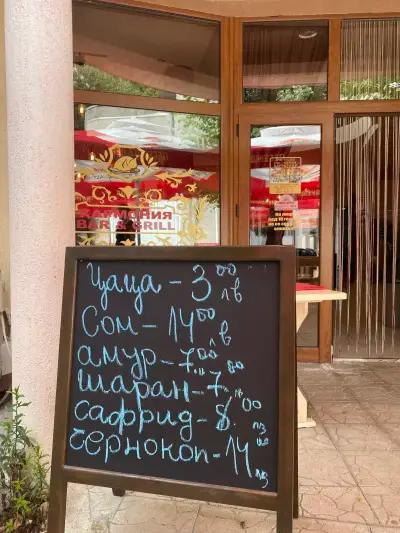 ХАРМОНИЯ
BAR & GRILL
Цаца - 3⁰⁰ лв
Сом - 14⁰⁰ лв
амур - 7.⁰⁰ лв
шаран - 7.⁰⁰ лв
сафрид - 8.⁰⁰ лв
Чернокоп - 14⁰⁰ лв